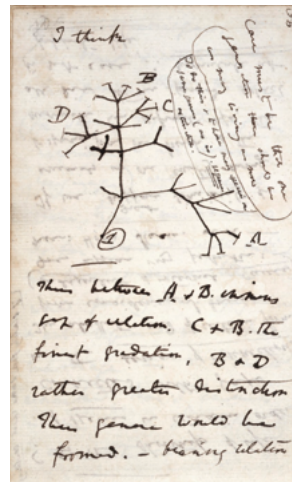 I think
B
D
C
A
1
Case must be that one
generation then should be
as many living as now
To do this & to have many species in
same genus (as is) requires
extinction
Thus between A & B. immense
gap of relation. C & B. the
finest gradation, B & D
rather greater distinction
Thus genera would be
formed. — bearing relation